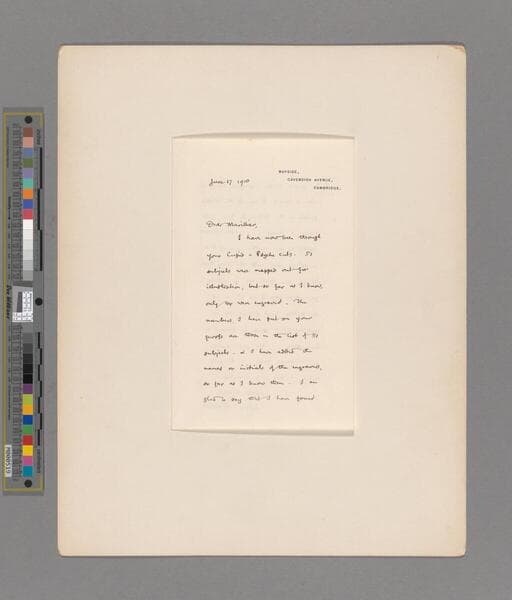 WAYSIDE,
CAVENDISH AVENUE,
CAMBRIDGE.
June 17 1910
Dear Marillier,
I have now been through
your Cupid & Psyche cuts. 51
subjects were mapped out for
illustration, but so far as I know,
only were engraved. The
numbers I have put on your
proofs are those in the list of 51
subjects. & I have added the
names or initials of the engravers,
so far as I know them. I am
glad to say that I have found